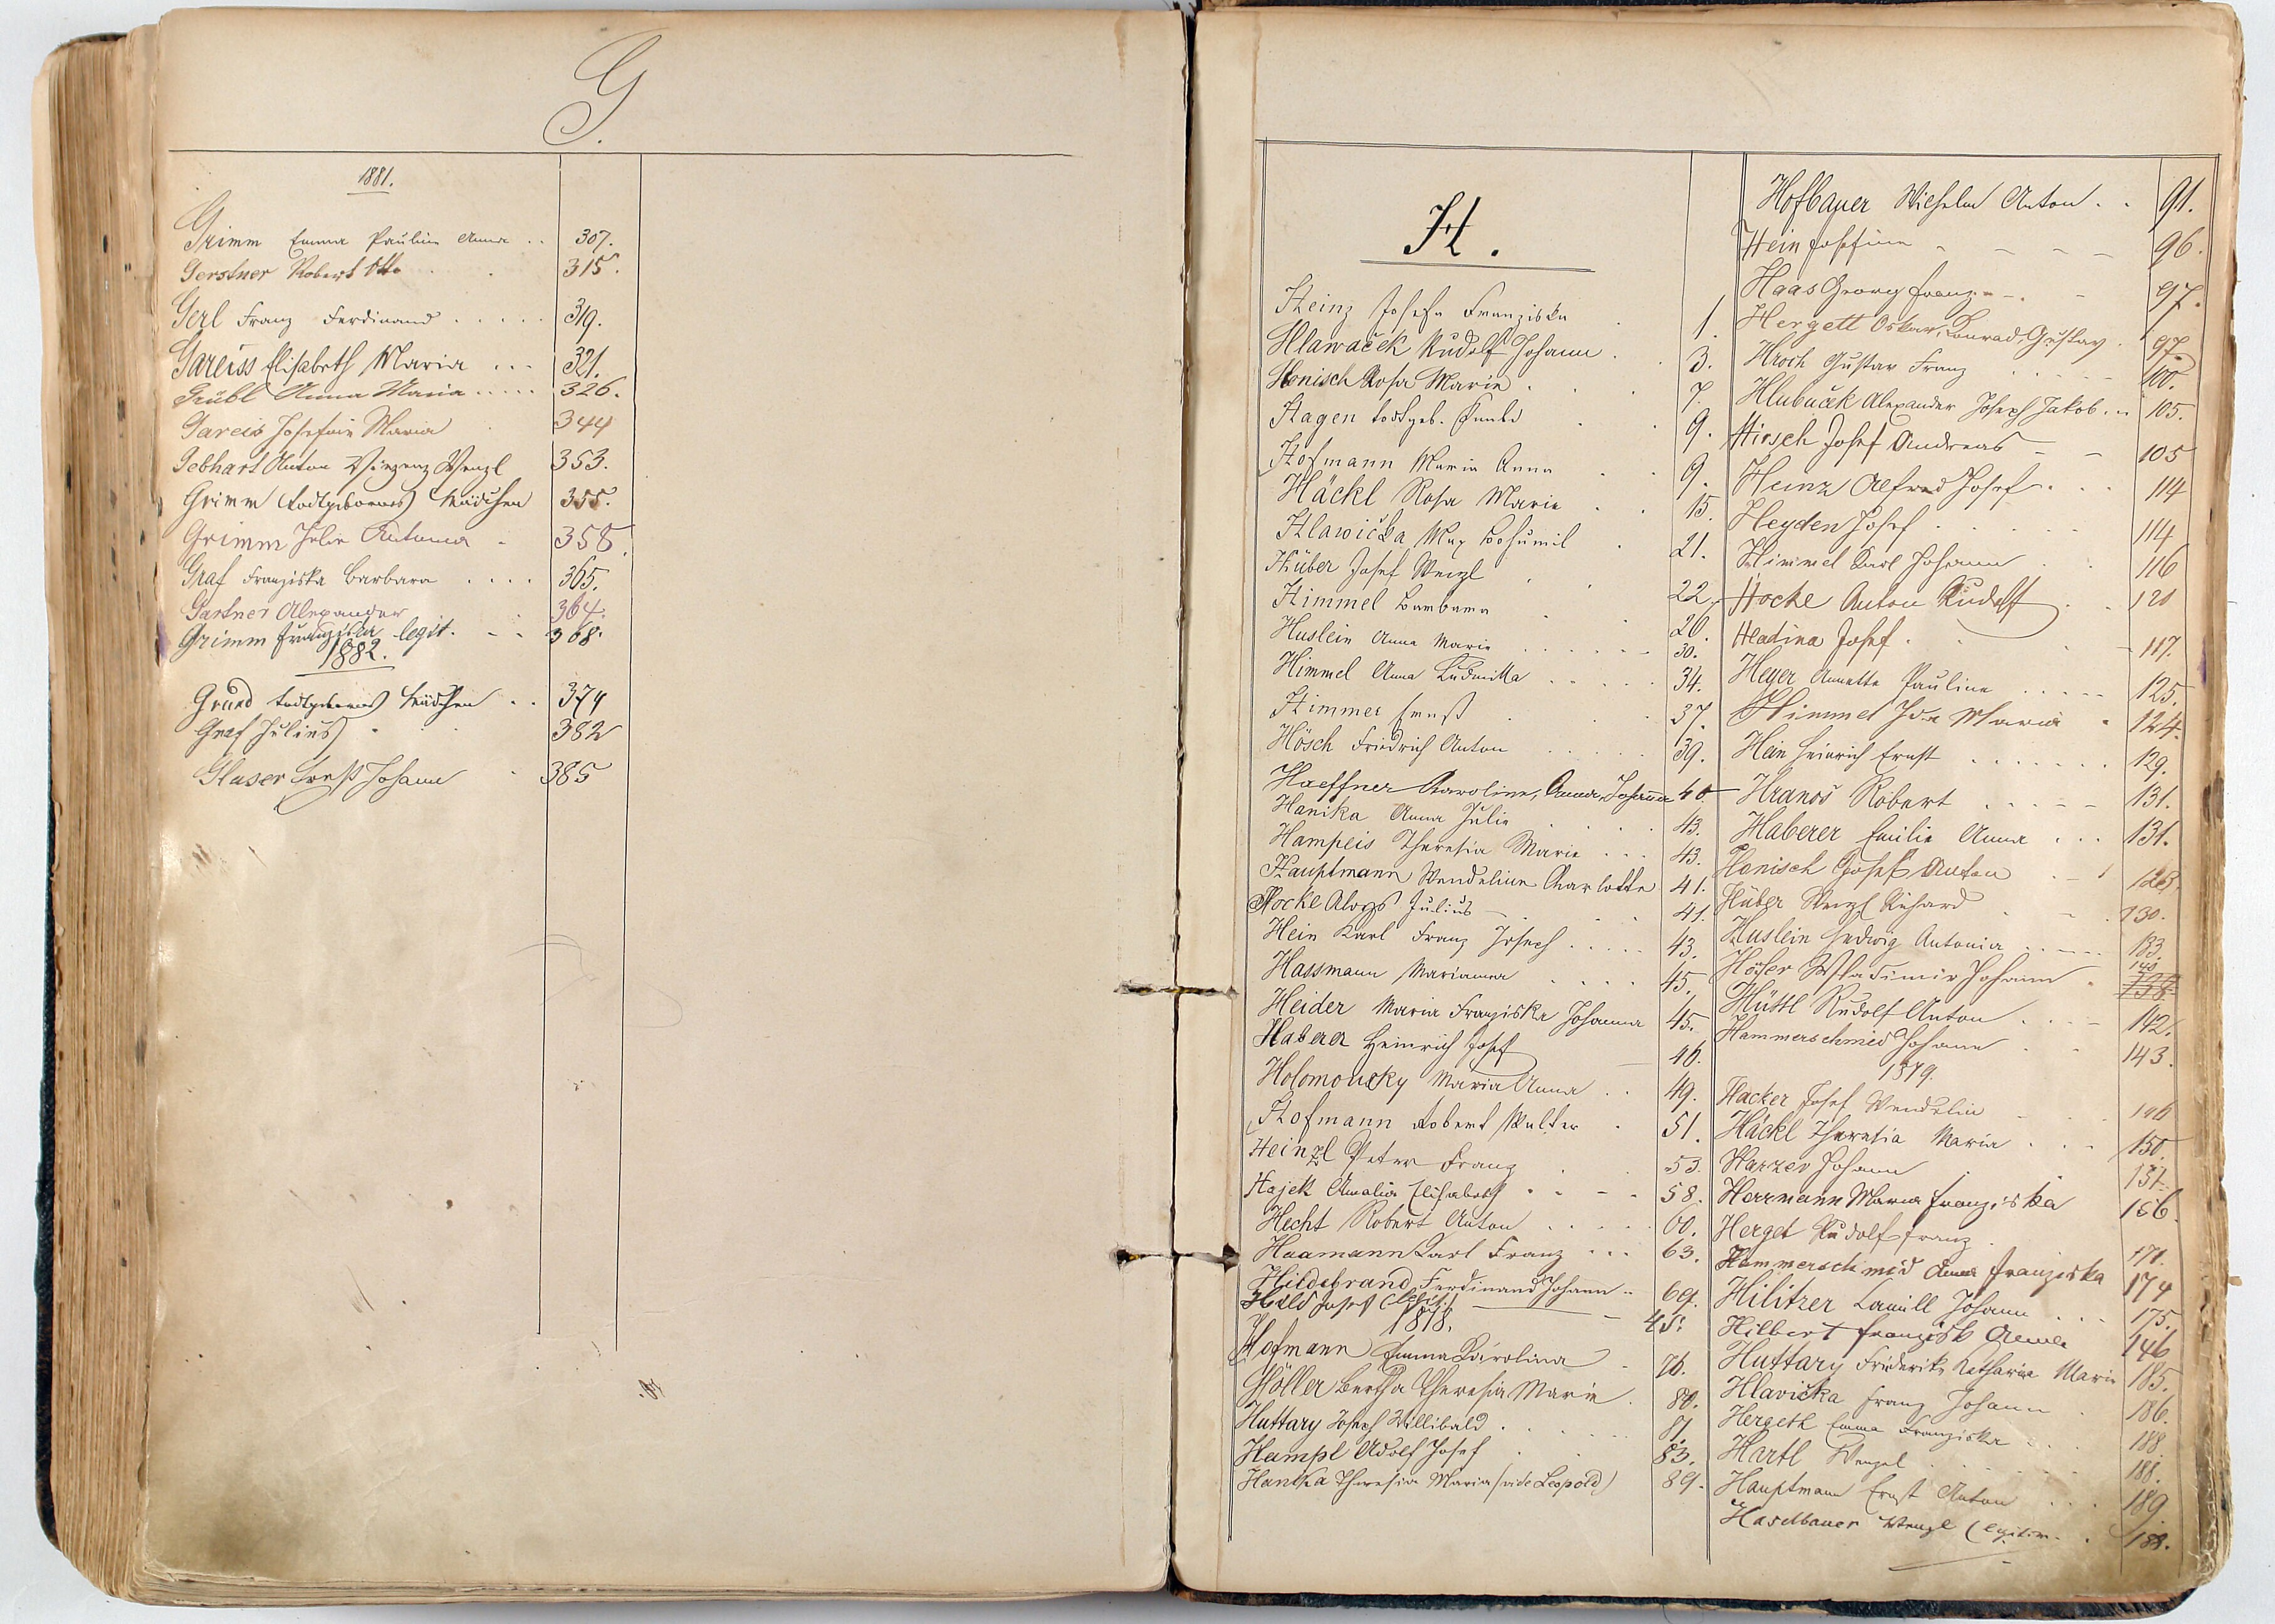 G.
1881.
Grimm Emma Pauline Anna . . 307.
Gerstner Robert Otto . . 315.
Gerl Franz Ferdinand . . . . . 319.
Gareiss Elisabeth Maria . . . 321.
Grübl Anna Maria . . . . . 326.
Gareis Josefine Maria 344
Gebhart Anton Vinzenz Wenzl 353.
Grimm (todtgebornes) Mädchen 355.
Grimm Julie Antonia - 358.
Graf Franziska Barbara . . . . 365.
Gartner Alexander 364.
Grimm Franziska legit. - - 368.
1882.
Grund todtgebornes Mädchen . . 374
Graf Julius . 382
Glaser Ernst Johann 385
H.
Heinz Josefa Franziska 1.
Hlawaček Rudolf Johann . . 3.
Honisch Rosa Marie . 7.
Hagen todtgeb. . 9.
Hofmann Maria Anna . . 9.
Häckl Rosa Marie . . 15.
Hlawička Max Bohumil . 21.
Hüber Josef Wenzl . 22.
Himmel Barbara . 26.
Huslein Anna Marie . . . . . . 30.
Himmel Anna Ludmilla . . . . . 34.
Himmer Ernst . . 37.
Hösch Friedrich Anton . . . . . 39.
Haeffner Karoline, Anna, Johanna 40
Hanika Anna Julie . . . . 43.
Hampeis Theresia Marie . . . 43.
Hauptmann Wendeline Charlotte 41.
Hocke Aloys Julius - . . . 41.
Hein Karl Franz Joseph . . . . . 43.
Hassmann Marianna . . . . . 45.
Heider Maria Franziska Johanna 45.
Haberer Heinrich Josef 46.
Holomoucky Maria Anna . . 49.
Hofmann Robert Walter . 51.
Heinzl Peter Franz . . 53.
Hajek Amalia Elisabeth . . - . 58.
Hecht Robert Anton . . . . . 60.
Haamann Karl Franz . . . 63.
Hildebrand Ferdinand Johann . . 69.
Hild Josef 45.
1878.
Hofmann Emma Karolina - 76.
Höller Bertha Theresia Marie . 80.
Huttary Joseph Willibald . . . . . 81.
Hampl Adolf Josef . . . 83.
Hanika Theresia Maria (vide Leopold) 89.
Hofbauer Wilhelm Anton . . 91.
Hein Josefine - - - - 96.
Haas Georg Franz - - . - 97.
Hergett Oskar, Konrad, Gustav . 97.
Hroch Gustav Franz . . . . . 100.
Hlubuček Alexander Joseph Jakob . . 105.
Hirsch Josef Andreas - - 105
Heinz Alfred Josef . . . 114
Heyden Josef . . . . . . 114
Himmel Karl Johann . . 116
Hocke Anton Rudolf . . 120
Hladina Josef . . . - 117.
Heyer Annette Pauline . . . . . 125.
Himmel Ida Maria . 124.
Hein Heinrich Ernst . . . . . . . 129.
Hranos Robert . . . . . 131.
Haberer Emilie Anna . . . 131.
Honisch Josef Anton . - 1
Hüber Wenzl Richard . - . 130.
Huslein Hedwig Antonia . . . . . 133.
Höfer Wladimir Johann . 140
Hüttl Rudolf Anton . . . . 142.
Hammerschmied Johann . . 143.
1879.
Hacker Josef Wendelin - - . 146
Häckl Theresia Maria . . . 150.
Harzer Johann . . 151.
Herrmann Maria Franziska 156.
Herget Rudolf Franz . 171.
Hammerschmid Anna Franziska 174
Hilitzer Kamill Johann . . . 175.
Hilbert 146
Huttary Friderike Katharina Maria 185.
Hlavička Franz Johann . 186.
Hergeth Emma Franziska . . . . 188.
Hartl Wenzel . . . . . . 188.
Hauptmann Ernst Anton . . . 189
Haselbauer Wenzl (legitim. . 188.